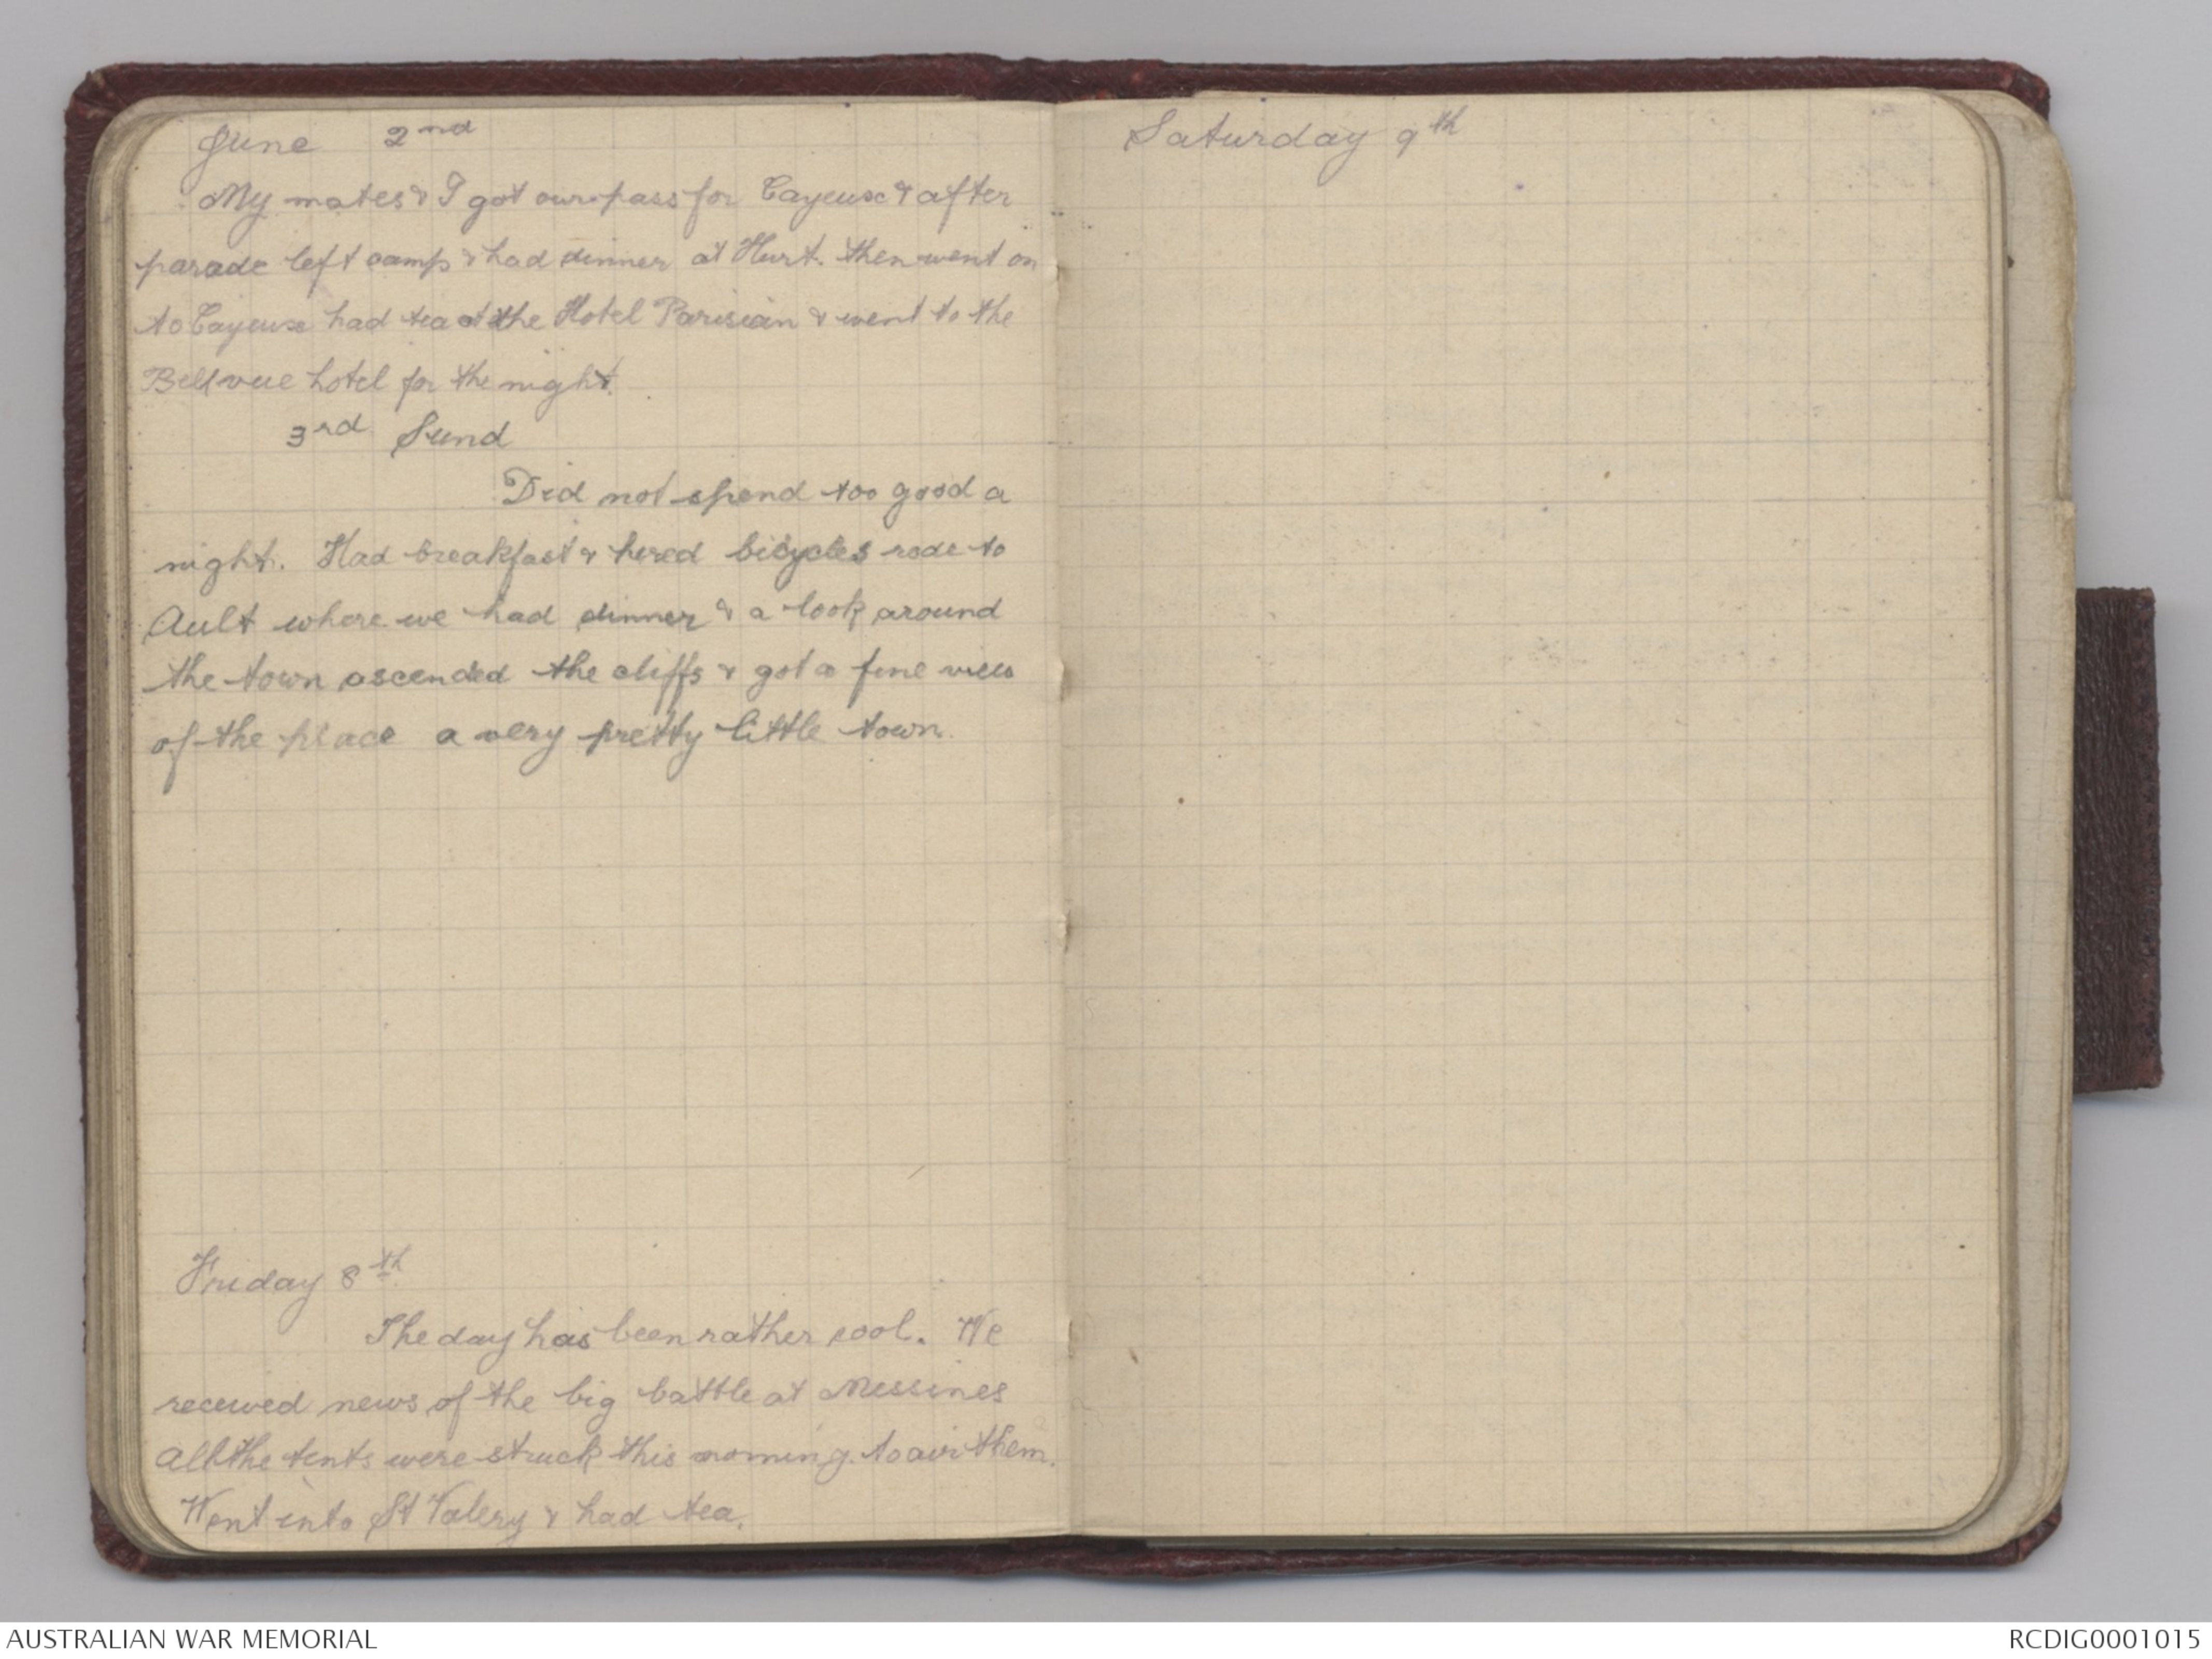 June 2nd
My mates & I got our pass for Cayeux & after
parade left camp & had dinner at Hurt. then went on
to Cayeux had tea at the Hotel Parisian & went to the
Bellvue hotel for the night.
3rd Sund
Did not spend too good a
night. Had breakfast & hired bicycles rode to
Ault where we had dinner & a look around
the town ascended the cliffs & got a fine view
of the place a very pretty little town.
Friday 8th
The day has been rather cool. We
received news of the big battle at Messines
All the tents were struck this morning. to air them.
Went into St Valery & had tea.
Saturday 9th
AUSTRALIAN WAR MEMORIAL
RCDIG0001015